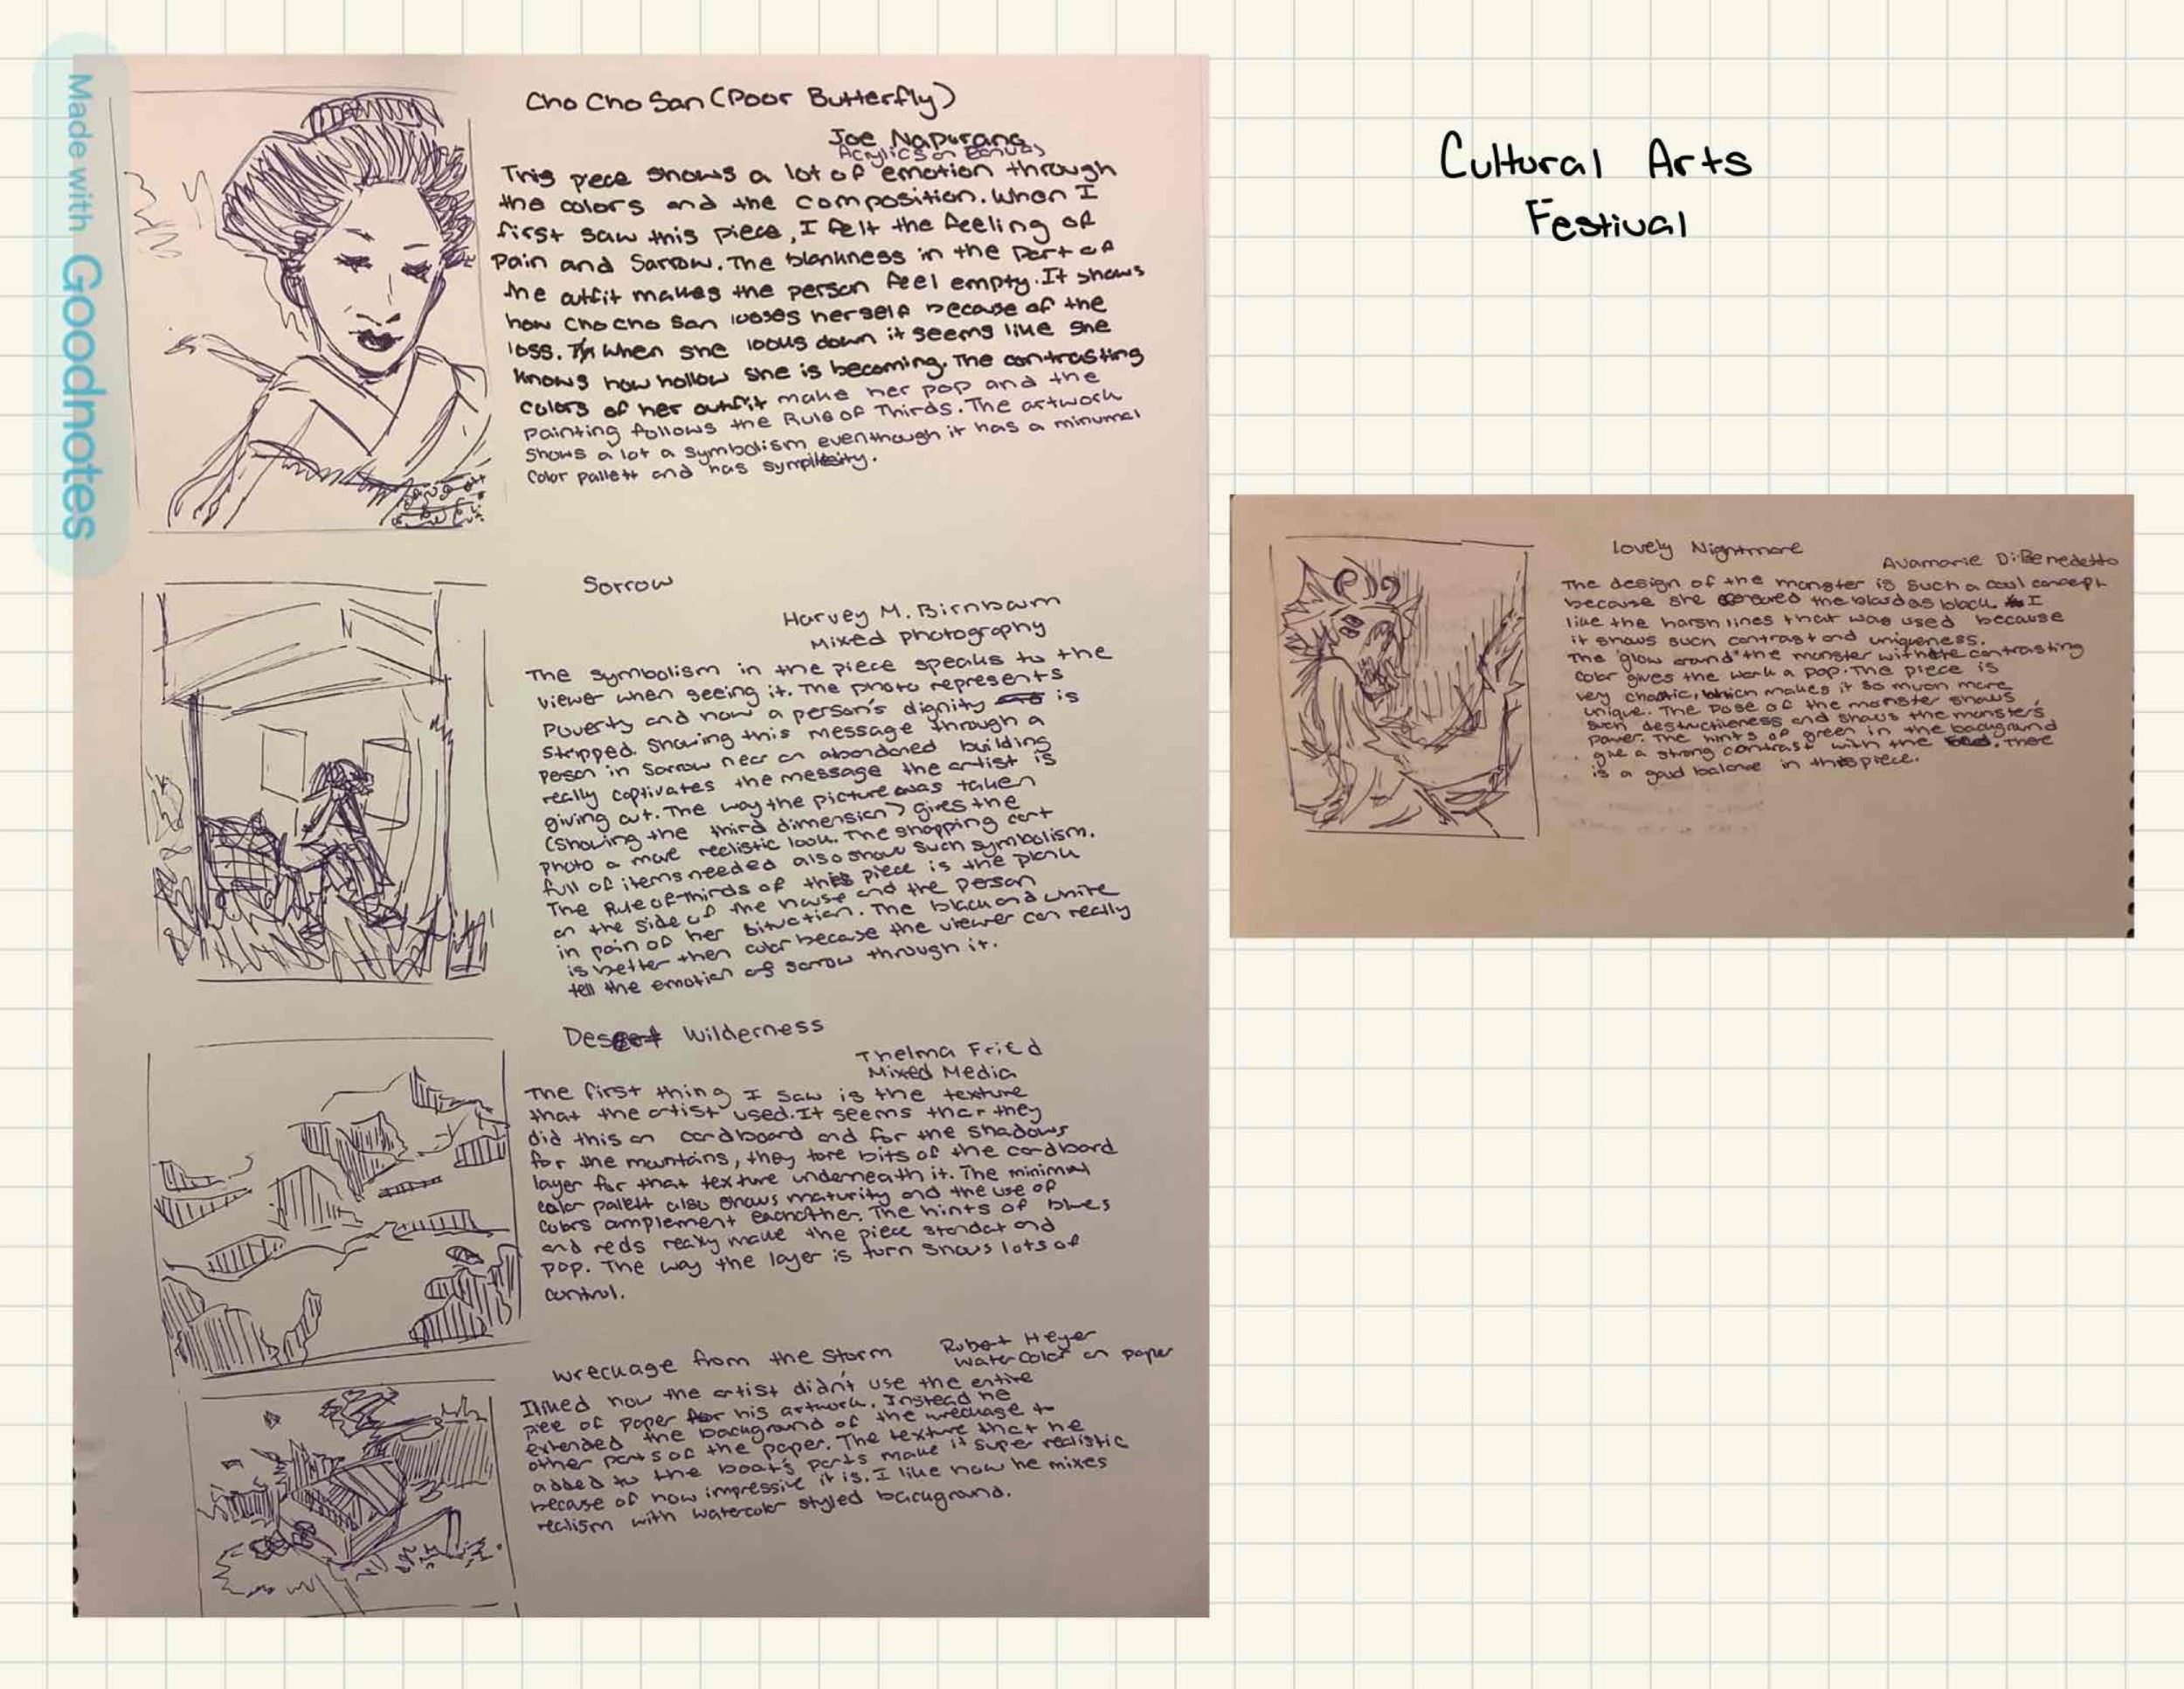 Made with Goodnotes
Cho Cho San (Poor Butterfly)
Joe Napurano
Acrylics on Canvas
This piece shows a lot of emotion through
the colors and the composition. When I
first saw this piece, I felt the feeling of
Pain and Sarrow. The blankness in the part of
the outfit makes the person feel empty. It shows
how Cho cho San looses herself because of the
loss. When she looks down it seems like she
knows how hollow she is becoming. The contrasting
colors of her outfit make her pop and the
painting follows the Rule of Thirds. The artwork
shows a lot a symbolism eventhough it has a minumal
Color pallett and has
Sorrow
Harvey M. Birnbaum
Mixed photography
The symbolism in the piece speaks to the
viewer when seeing it. The photo represents
Poverty and how a person's dignity is
stripped. Showing this message through a
person in sorrow near an abandoned building
really captivates the message the artist is
giving out. The way the picture was taken
(showing the third dimension) gives the
photo a more realistic look. The shopping cart
full of items needed also show such symbolism.
The Rule of thirds of this piece is the plank
on the side of the house and the person
in pain of her bituation. The black and white
is better then color because the viewer can really
tell the emotion of sorrow through it.
Desert Wilderness
Thelma Fried
Mixed Media
The first thing I saw is the texture
that the artist used. It seems that they
did this on cardboard and for the shadows
for the mountains, they tore bits of the cardboard
layer for that texture underneath it. The minimal
color pallett also shows maturity and the use of
colors complement eachother. The hints of blues
and reds really make the piece standout and
pop. The way the layer is turn shows lots of
control.
Wreckage from the Storm
Robert Heyer
Watercolor on paper
I liked how the artist didn't use the entire
piee of paper for his artwork. Instead he
extended the background of the wreckage to
other parts of the paper. The texture that he
added to the boat's parts make it super realistic
because of how impressive it is. I like how he mixes
realism with watercolor styled background.
Cultural Arts
Festival
Lovely Nightmare
Avamarie DiBenedetto
The design of the monster is such a cool concept
because she the blood as black I
like the harsh lines that was used because
it shows such contrast and uniqueness.
The "glow around" the monster with the contrasting
color gives the work a pop. The piece is
very chaotic, which makes it so much more
unique. The pose of the monster shows
such destructiveness and shows the monster's
power. The hints of green in the background
give a strong contrast with the There
is a good balance in this piece.